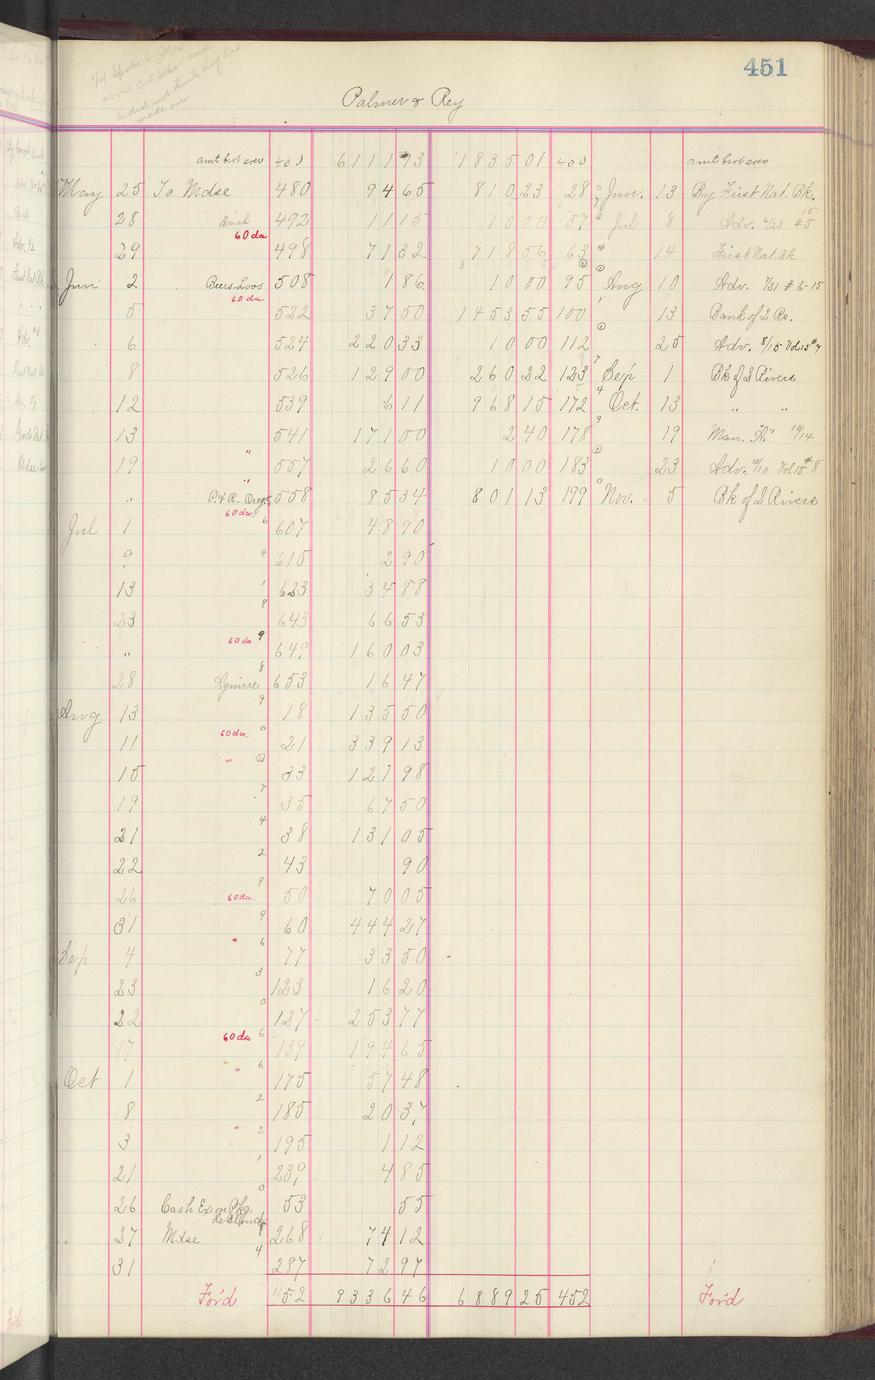 451
1/4 Spoke to
about Cut
he did not think they had
made one
Palmer & Rey
amt brot over 450 6111 93 1835 01 450 amt brot over
May 25 To Mdse 480 94 65 810 23 28 Jun. 13 By First Nat. Bk.
28 492 11 15 10 00 57 Jul 8 Adv. 6/23 #5 15
29 60 da 498 71 32 718 56 63 14 First Nat. Bk
Jun 2 508 1 86 10 00 95 Aug 10 Adv. 7/31 #6-15
5 60 da 522 37 50 1453 55 100 13 Bank of 2 Rs.
6 524 220 33 10 00 112 25 Adv. 8/15 Vol 15 #7
8 526 129 00 260 22 123 Sep 1 Bk of 2 Rivers
12 539 6 11 968 15 172 Oct. 13 " "
13 541 171 00 2 40 178 19 Man. 10/14
19 " 557 26 60 10 00 183 23 Adv. 10/10 Vol 15 #8
" " P. & R. 558 85 34 801 13 199 Nov. 5 Bk of 2 Rivers
Jul 1 60 da. 6 607 48 90
9 4 615 2 90
13 1 623 34 88
23 9 643 66 53
" 60 da 9 649 160 03
28 8 Squirre 653 16 47
Aug 13 9 18 135 50
11 60 da. 0 21 339 13
15 " 33 127 98
19 7 35 67 50
21 4 38 131 05
22 2 43 90
26 9 50 70 05
31 60 da. 9 60 444 27
Sep 4 " 6 77 33 50
23 3 123 16 20
22 0 127 253 77
17 60 da 6 139 194 65
Oct 1 " 6 175 57 48
8 2 185 20 37
3 " 2 195 1 12
21 1 239 4 85
26 Cash Ex on Pkg. 0 53 55
27 Mdse 268 74 12
31 4 287 72 97
For'd 452 9336 46 6889 25 452 For'd